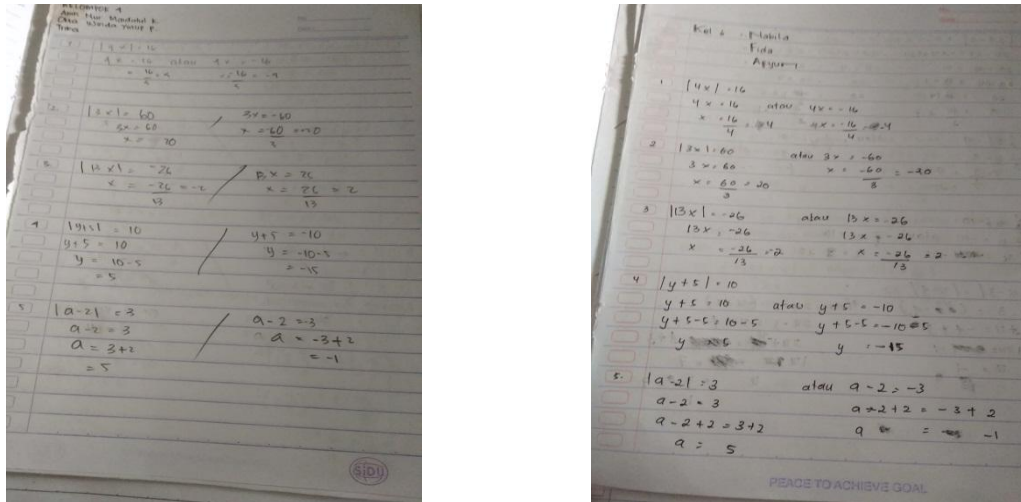 KELOMPOK 4
1. |4x| = 16
4x = 16 atau 4x = -16
= 16/4 = 4 = -16/4 = -4
2. |3x| = 60 / 3x = -60
3x = 60 x = -60/3
x = 20
3. |13x| = -26 / 13x = 26
x = -26/13 = -2 x = 26/13 = 2
4. |y+5| = 10 / y+5 = -10
y+5 = 10 y = -10-5
y = 10-5 = -15
= 5
5. |a-2| = 3 / a-2 = -3
a-2 = 3 a = -3+2
a = 3+2 = -1
= 5
SiDU
Kel 6 : Nabila
Fida
1 |4x| = 16
4x = 16 atau 4x = -16
x = 16/4 = 4 4x = -16/4 = -4
2 |3x| = 60 atau 3x = -60
3x = 60 x = -60/3 = -20
x = 60/3 = 20
3 |13x| = -26 atau 13x = -26
13x = -26 13x = -26
x = -26/13 = -2 x = -26/13 = 2
4 |y+5| = 10
y+5 = 10 atau y+5 = -10
y+5-5 = 10-5 y+5-5 = -10-5
y = 5 y = -15
5. |a-2| = 3 atau a-2 = -3
a-2 = 3 a-2+2 = -3+2
a-2+2 = 3+2 a = -1
a = 5
PEACE TO ACHIEVE GOAL